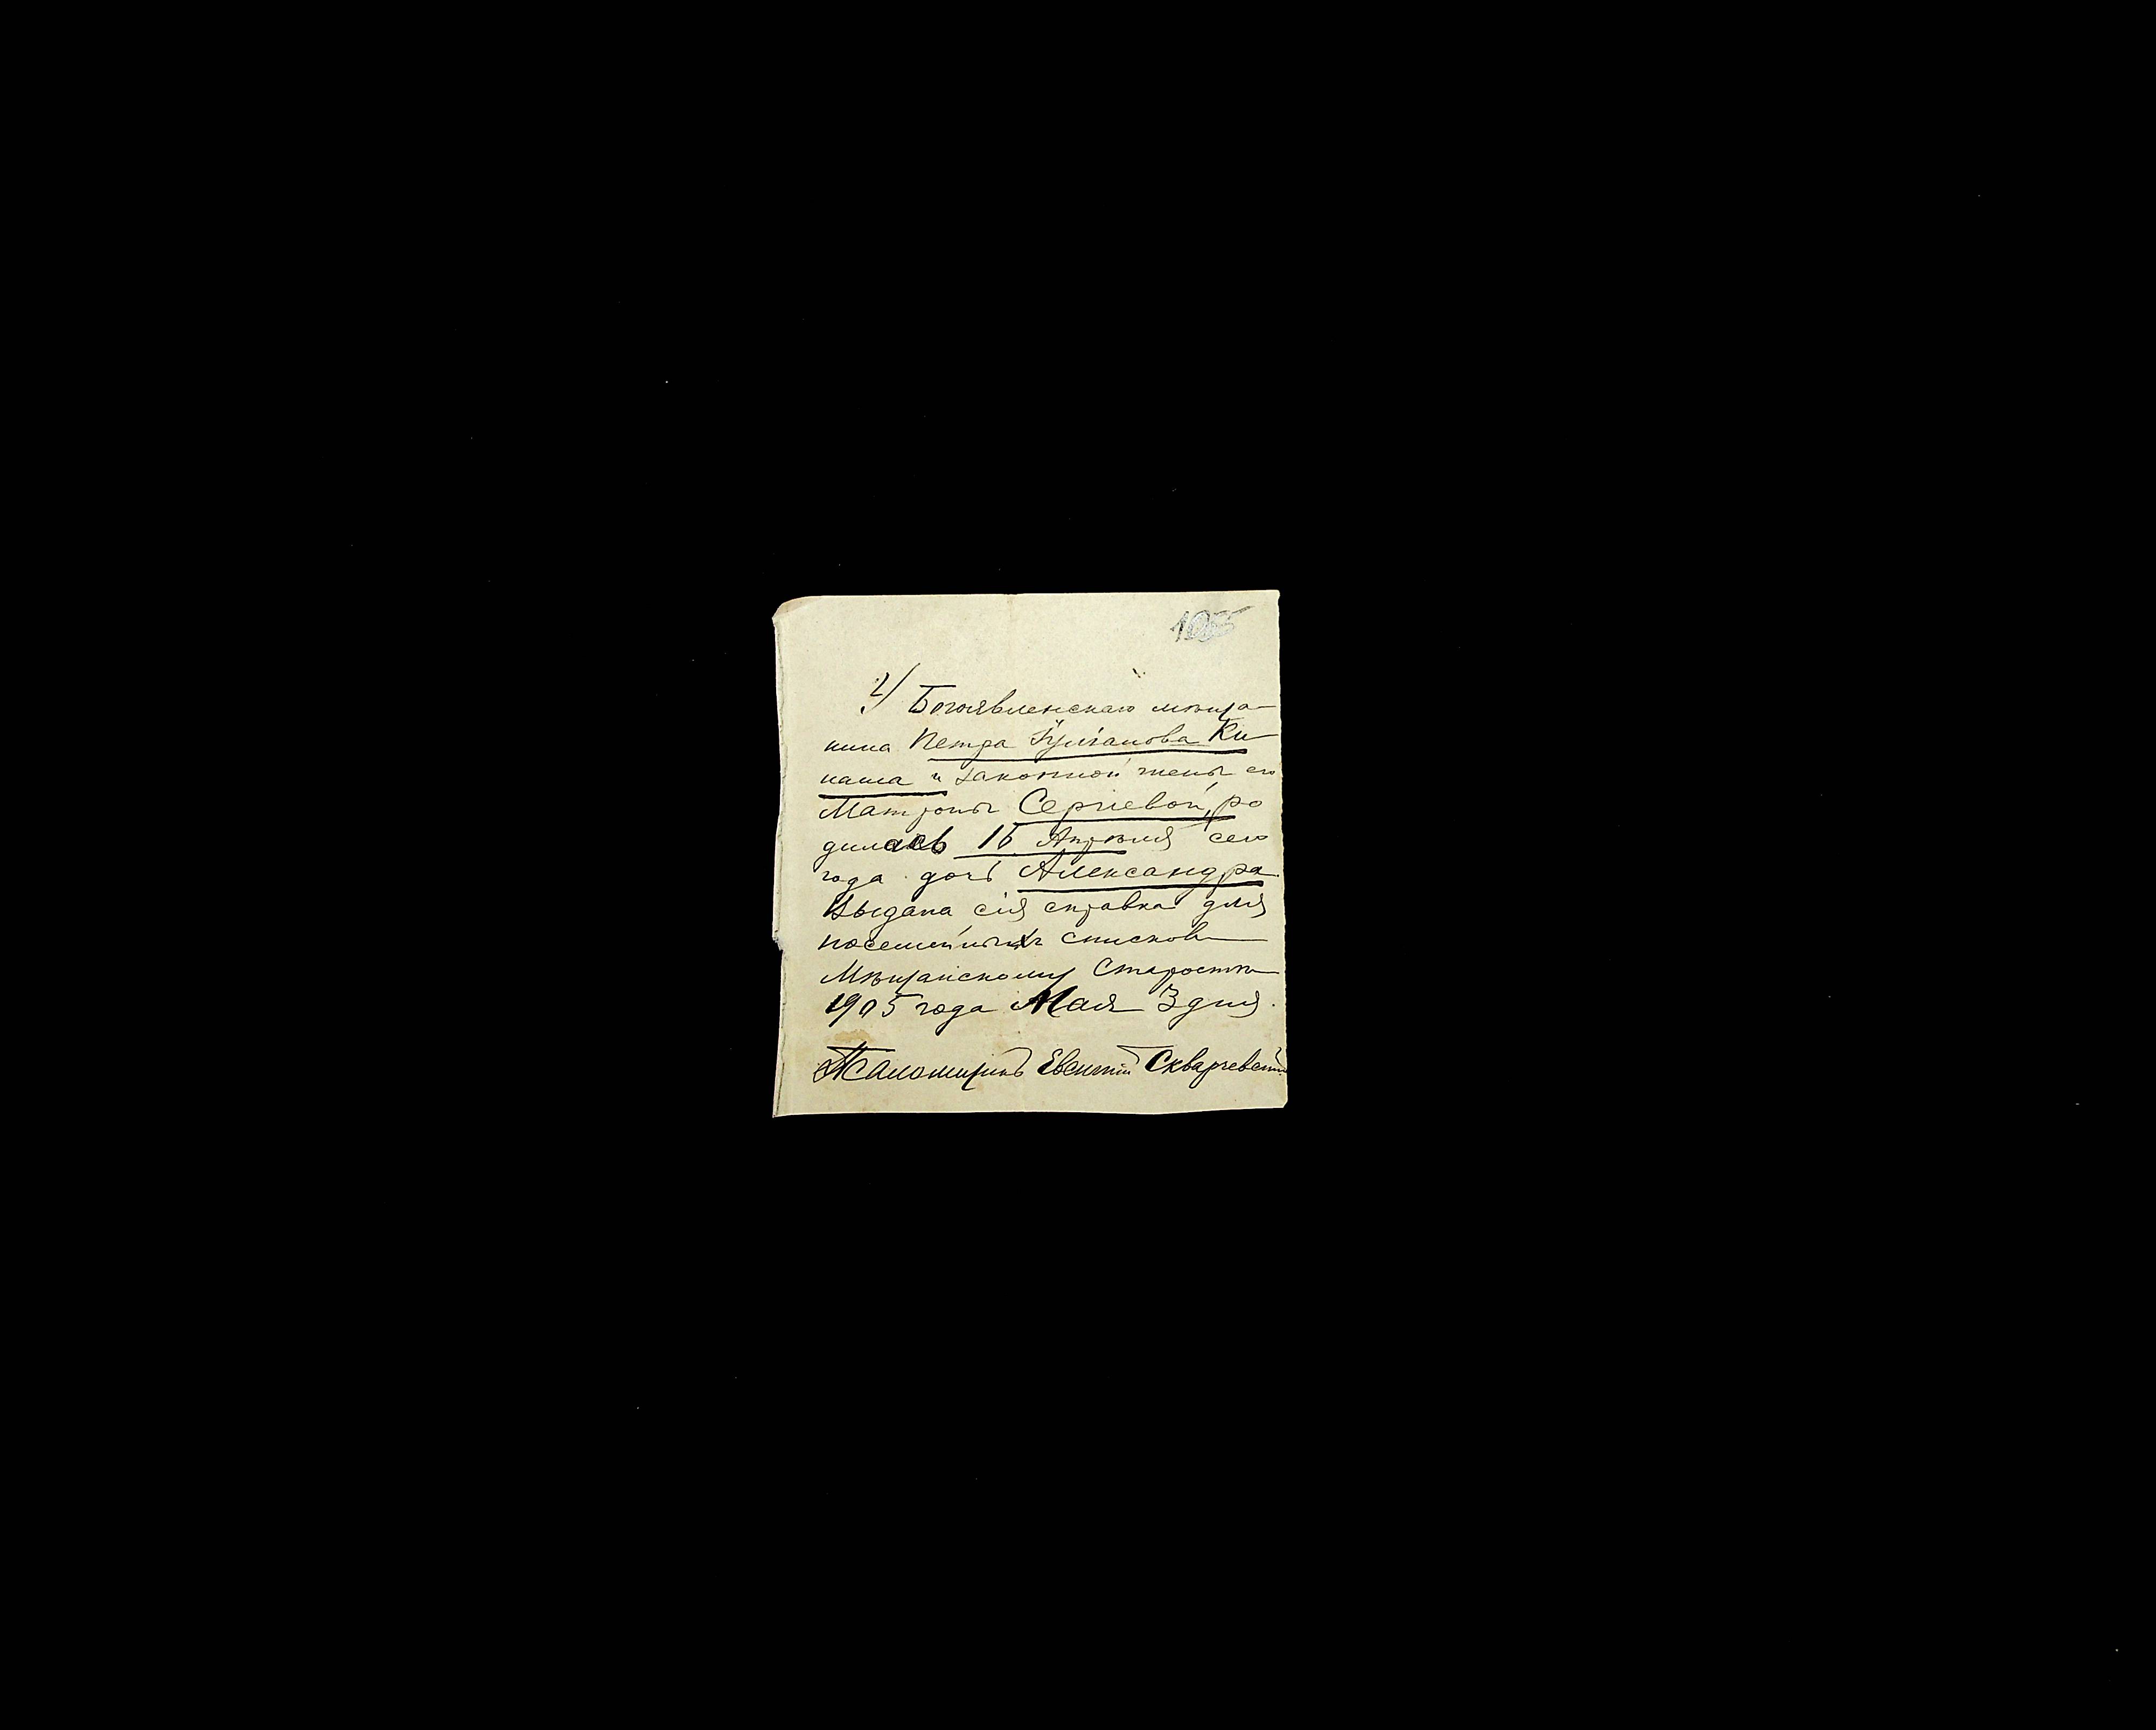 2/ Богоявленскаго мѣща-
нина Петра Іуліанова Ки-
наша и законной жены его
Матроны Сергіевой, ро
дилась 16 Апрѣля сего
года дочь Александра
Выдана сія справка для
посемейныхъ списковъ
Мѣщанскому Старостѣ
1905 года Мая 3 дня.
Псаломщикъ Евгеній